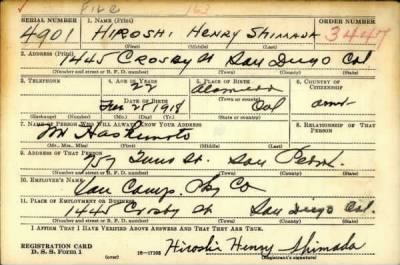 File 163
SERIAL NUMBER 1. NAME (Print) ORDER NUMBER
4901 HIROSHI HENRY SHIMADA 3447
(First) (Middle) (Last)
2. ADDRESS (Print)
1445 CROSBY St San Diego Cal
(Number and street or R. F. D. number) (Town) (County) (State)
3. TELEPHONE 4. AGE IN YEARS 5. PLACE OF BIRTH 6. COUNTRY OF CITIZENSHIP
22 Alameda
DATE OF BIRTH (Town or county)
25 1918 Cal Amer
(Exchange) (Number) (Mo.) (Day) (Yr.) (State or country)
7. NAME OF PERSON WHO WILL ALWAYS KNOW YOUR ADDRESS 8. RELATIONSHIP OF THAT PERSON
M Hashimoto
(Mr., Mrs., Miss) (First) (Middle) (Last)
9. ADDRESS OF THAT PERSON
757 St. San Pedro
(Number and street or R. F. D. number) (Town) (County) (State)
10. EMPLOYER'S NAME
Van Camp Co
11. PLACE OF EMPLOYMENT OR BUSINESS
1445 Crosby St San Diego Cal.
(Number and street or R. F. D. number) (Town) (County) (State)
I AFFIRM THAT I HAVE VERIFIED ABOVE ANSWERS AND THAT THEY ARE TRUE.
REGISTRATION CARD
D. S. S. Form 1 (over) 16-17105 Hiroshi Henry Shimada
(Registrant's signature)